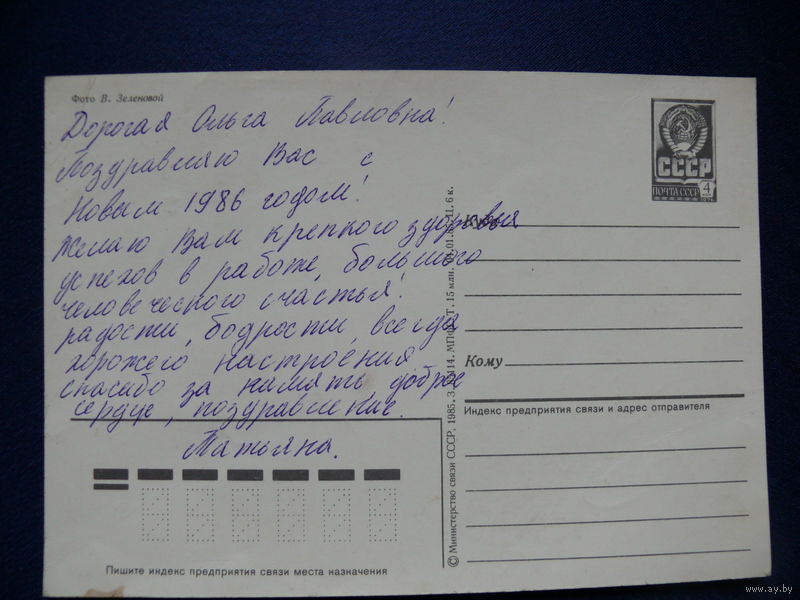 Фото В. Зеленовой
Дорогая Ольга Павловна!
Поздравляю Вас с
Новым 1986 годом!
Желаю Вам крепкого здоровья
успехов в работе, большого
человеческого счастья!
радости, бодрости, всегда
хорошего настроения
спасибо за память, доброе
сердце, поздравление.
Татьяна.
СССР
ПОЧТА СССР 4
1976
Куда
Кому
Индекс предприятия связи и адрес отправителя
© Министерство связи СССР, 1985. МПФГ. 15 млн. Ц. 6 к.
Пишите индекс предприятия связи места назначения
www.ay.by